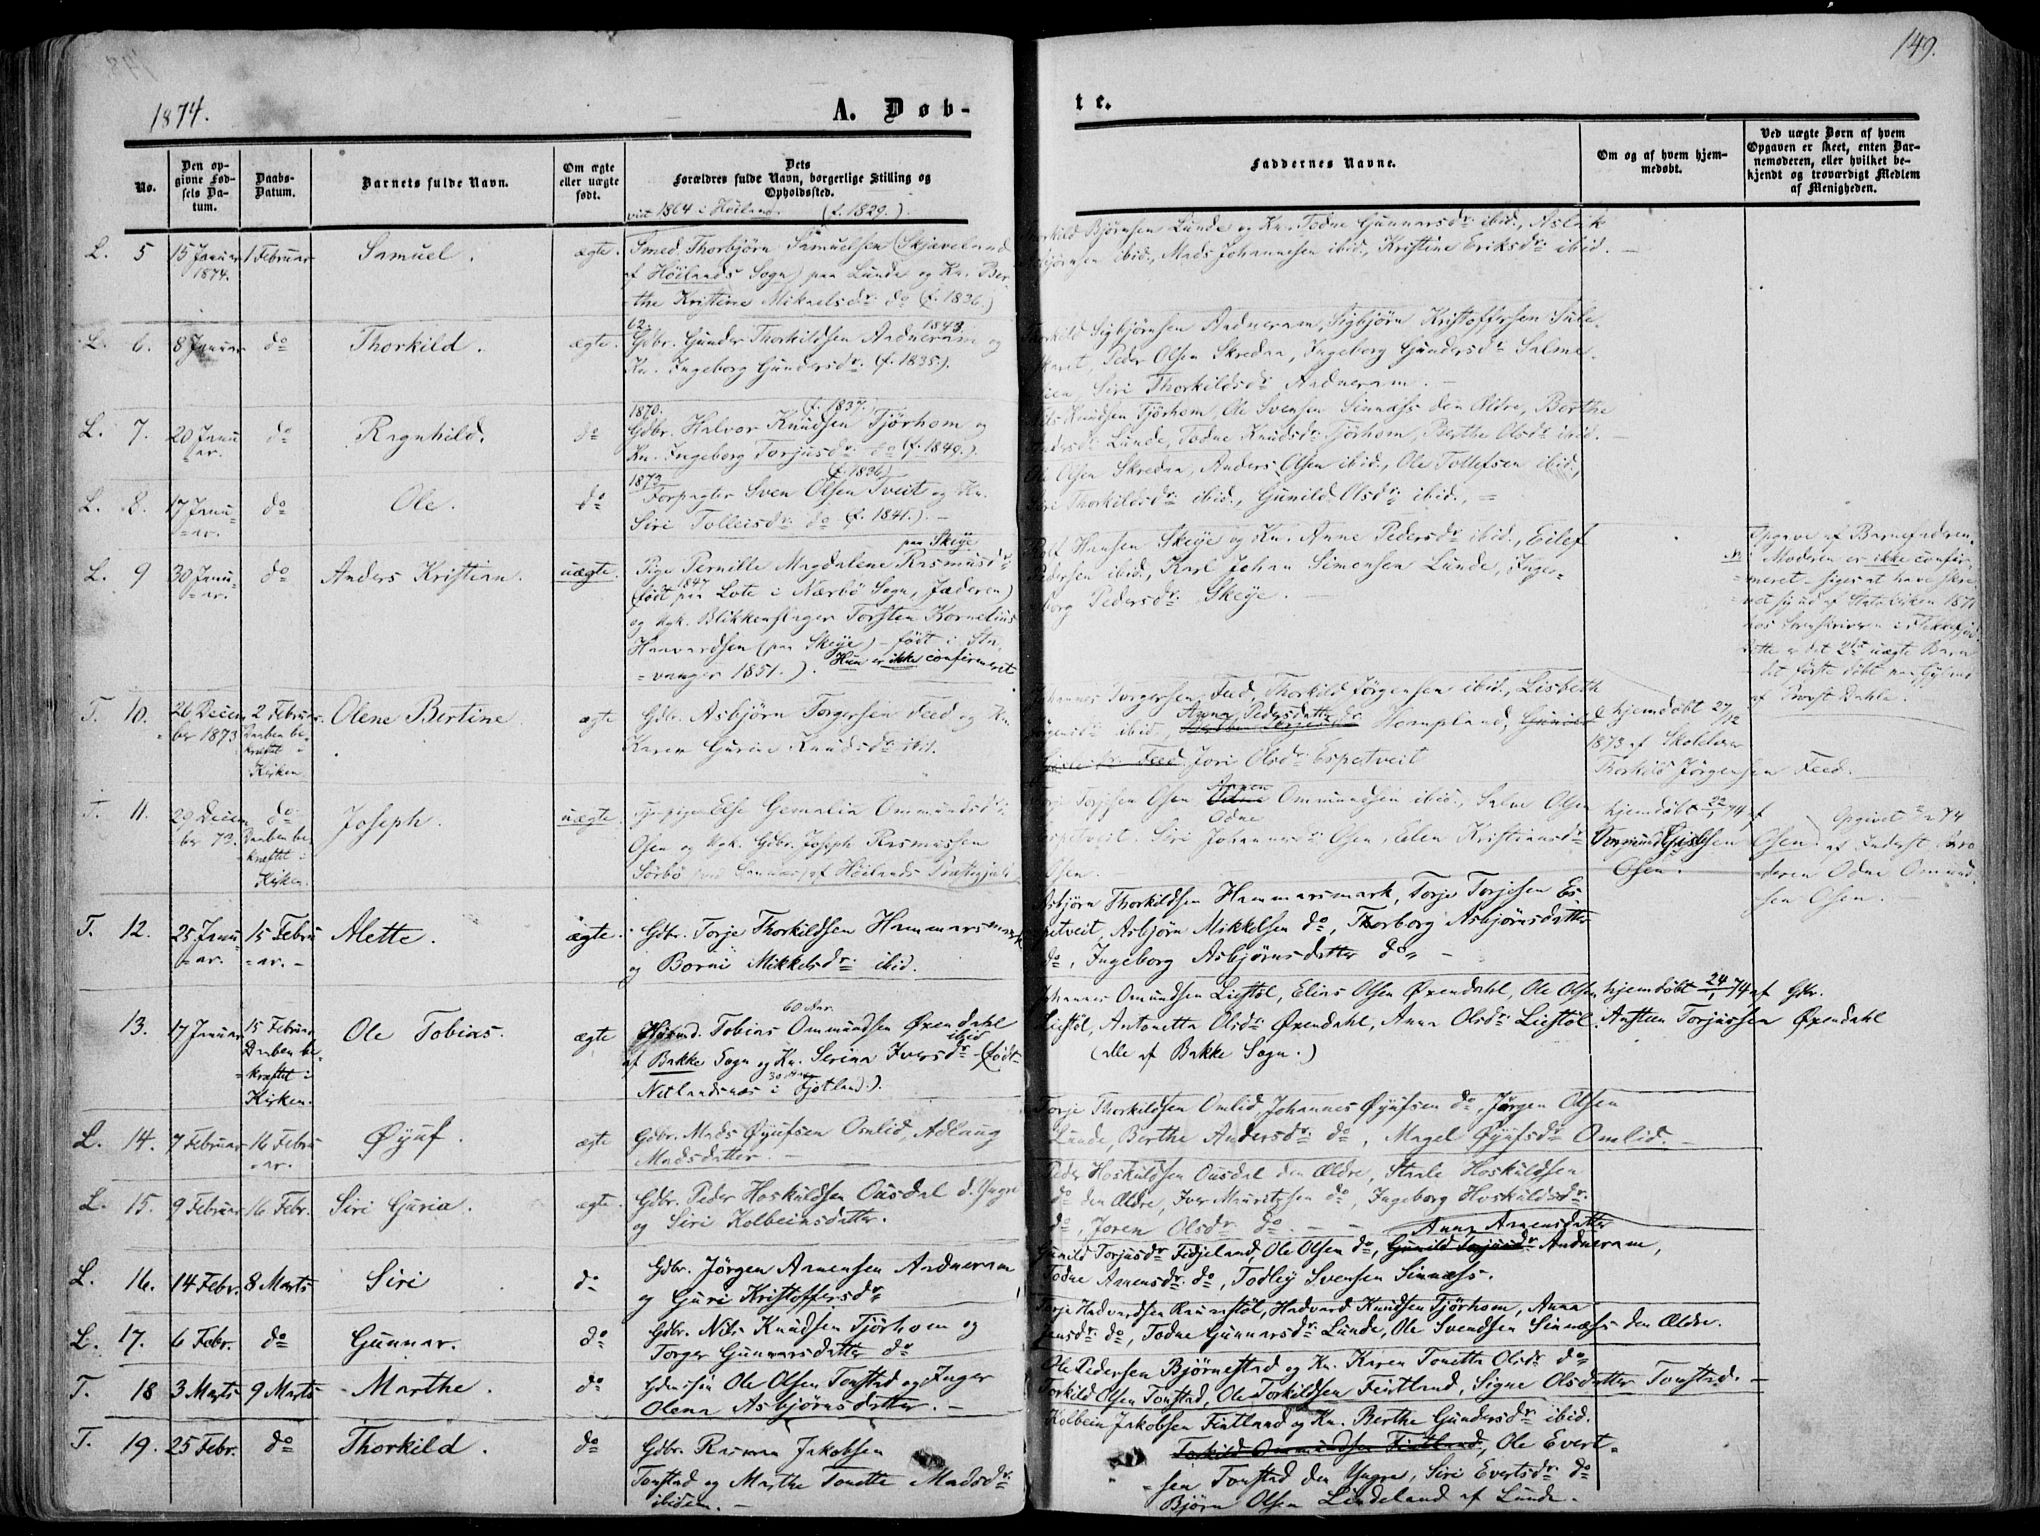 149.
1874.
A. Døb-
te.
No.
Den op-
givne Fød-
sels Da-
tum.
Daabs-
Datum.
Barnets fulde Navn.
Om ægte
eller uægte
født.
Dets
Forældres fulde Navn, borgerlige Stilling og
Opholdssted.
Faddernes Navne.
Om og af hvem hjem-
medøbt.
Ved uægte Børn af hvem
Opgaven er skeet, enten Bar-
nemoderen, eller hvilket be-
kjendt og troværdigt Medlem
af Menigheden.
viet 1864 i Höiland. (f. 1829.)
L. 5 15 Januar 1874. 1 Februar Samuel. ægte.
Smed. Thorbjörn Samuelsen (Skjæveland
af Höilands Sogn) paa Lunde og Kn. Ber-
the Kristine Mikaelsdr. do (f. 1836.)
Björnsen Lunde og Kn. Todne Gunnarsdr. ibid., Aslak
ibid., Mads Johannesen ibid., Kristine Eriksdr. ibid. —
L. 6. 8 Januar do Thorkild. ægte.
62. 1843.
Gdbr. Gunder Thorkildsen Ardneram og
Kn. Ingeborg Gundersdr. (f. 1835).
Sigbjörnsen Ardneram, Sigbjörn Kristoffersen
Peder Olsen Skredaa, Ingeborg Gundersdr. Salme-
Siri Thorkildsdr. Ardneram. —
L. 7. 20 Janu-
ar. do Ragnhild. do
1870. (f. 1837.)
Gdbr. Halvor Knudsen Tjörhom og
Kn. Ingeborg Torjusdr. do (f. 1849.).
Knudsen Tjörhom, Ole Svensen Sinnæss den Ældre, Berthe
Lunde, Todne Knudsdr. Tjörhom, Berthe Olsdr. ibid. —
L. 8. 17 Janu-
ar. do Ole. do
1873 (f. 1836)
Forpagter Sven Olsen Tveit og Kn.
Siri Tolleisdr. do (f. 1841.). —
Ole Olsen Skredaa, Anders Olsen ibid., Ole Tollefsen ibid.,
Siri Thorkildsdr. ibid., Gunild Olsdr. ibid., —
L. 9 30 Janu-
ar. do Anders Kristian. uægte.
paa Skeije
Pige Pernille Magdalene Rasmusdr.
(født 1847 paa Lote i Nærbö Sogn, Jæderen)
og Ugk. Blikkenslager Torsten Kornelius
Haavardsen (paa Skeije) – født i Sta-
vanger 1851.). Hun er ikke confirmeret
Hansen Skeije og Kn. Anne Pedersdr. ibid., Eilef
Pedersen ibid., Karl Johan Simonsen Lunde, Inge-
borg Pedersdr. Skeije. —
Opgave af Barnefaderen.
Moderen er ikke confir-
meret – siges at have
ud af Statskirken 1871
hos Sorenskriveren i Flekkefjord.
Dette er det 2det uægte Barn
det første döbt paa Gyland
af Provst Dahle.
T. 10. 26 Decem-
ber 1873 2 Februar
Daaben be-
kræftet i
Kirken Olene Bertine ægte
Gdbr. Asbjörn Torgersen Feed og Kn.
Karen Gurine Knudsdr. ibid.
Johannes Torgersen Feed, Thorkild Jörgensen ibid., Lisbeth
ibid., Anna Pedersdatter Hompland,
Feed Jori Olsdr. Espetveit
hjemdøbt 27/12
1873 af Skolelærer
Thorkild Jörgensen Feed.
T. 11. 29 Decem-
ber 73. do
Daaben be-
kræftet i
Kirken. Joseph. uægte.
Else Gemalia Ommundsdr.
Osen og Ugk. Gdbr. Joseph Rasmussen
Sörbö af Höilands Præstegjeld
Torjsen Osen, Odne Ommundsen ibid., Salve Olsen
Espetveit. Siri Johannesdr. Osen, Elen Kristiansdr.
Osen.
hjemdøbt 74 af
Ommund
Osen.
Opgivet 74
af Inderst
Odne Ommund-
sen Osen. —
T. 12. 25 Janu-
ar. 15 Febru-
ar. – Alette. ægte.
Gdbr. Torje Thorkildsen Hammarsmark
og Borni Mikkelsdr. ibid.
Asbjörn Thorkildsen Hammarsmark, Torje Torjesen Es-
petveit, Asbjörn Mikkelsen do, Thorborg Asbjörnsdatter
do, Ingeborg Asbjörnsdatter do, —
13. 17 Januar 15 Februar
Daaben be-
kræftet i
Kirken. Ole Tobias. ægte
60 Aar.
Tobias Ommundsen Øxendahl
af Bakke Sogn og Kn. Serina Iversdr. ibid (født
Netlandsnæs i Fjotland.).
Johannes Omundsen Liestöl, Elias Olsen Øxendahl, Ole Olsen
Liestöl, Antonetta Olsdr. Øxendahl, Anna Olsdr. Liestöl.
(alle af Bakke Sogn.)
hjemdøbt 24/1 74 af Gbr.
Austeen Torjussen Øxendahl
L. 14. 7 Februar 16 Febru-
ar. Øyuf. ægte
Gdbr. Mads Øyufsen Omlid, Adlaug
Madsdatter. —
Torje Thorkildsen Omlid, Johannes Øyufsen do, Jörgen Olsen
Lunde, Berthe Andersdr. do, Magel Øyufsdr. Omlid. —
L. 15. 9 Februar 16 Febr. Siri Guria. ægte.
Gdbr. Peder Hoskuldsen Ousdal d. Yngre
og Siri Kolbeinsdatter.
Peder Hoskuldsen Ousdal den Ældre, Staale Hoskuldsen
do den Ældre, Iver Mauritzsen do, Ingeborg Hoskuldsdr.
do, Joren Olsdr. do. — —
L. 16. 14 Febr. 8 Marts Siri do
Gdbr. Jörgen Arnensen Ardneram
og Guri Kristoffersdr.
Anna Arnensdatter
Gunild Torjusdr. Fidjeland, Ole Olsen do, Gunild Torjusdr. Ardneram,
Todne Aanensdr. do, Todley Svensen Sinnæss.
L. 17. 6 Febr. do Gunnar. do
Gdbr. Nils Knudsen Tjörhom og
Torger Gunnarsdatter do
Torje Hadvardsen Knunstöl, Hadvard Knudsen Tjörhom, Anna
do, Todne Gunnarsdr. Lunde, Ole Svendsen Sinnæss den Ældre.
T. 18 3 Marts 9 Marts Marthe. do
Ole Olsen Tonstad og Inger
Olena Asbjörnsdatter. —
Ole Pedersen Björnestad og Kn. Karen Tonetta Olsdr. do
Torkild Olsen Tonstad, Ole Torkildsen Fintland, Signe Olsdatter Tonstad. —
T. 19. 25 Febr. do Thorkild. do
Gdbr. Rasmus Jakobsen
Tonstad og Marthe Tonette Madsdr.
ibidem. —
Kolbein Jakobsen Fintland og Kn. Berthe Gundersdr. ibid.
Torkild Ommundsen Fintland, Ole Evert-
sen Tonstad den Yngre, Siri Evertsdr. do
Björn Olsen Lindeland af Lunde.